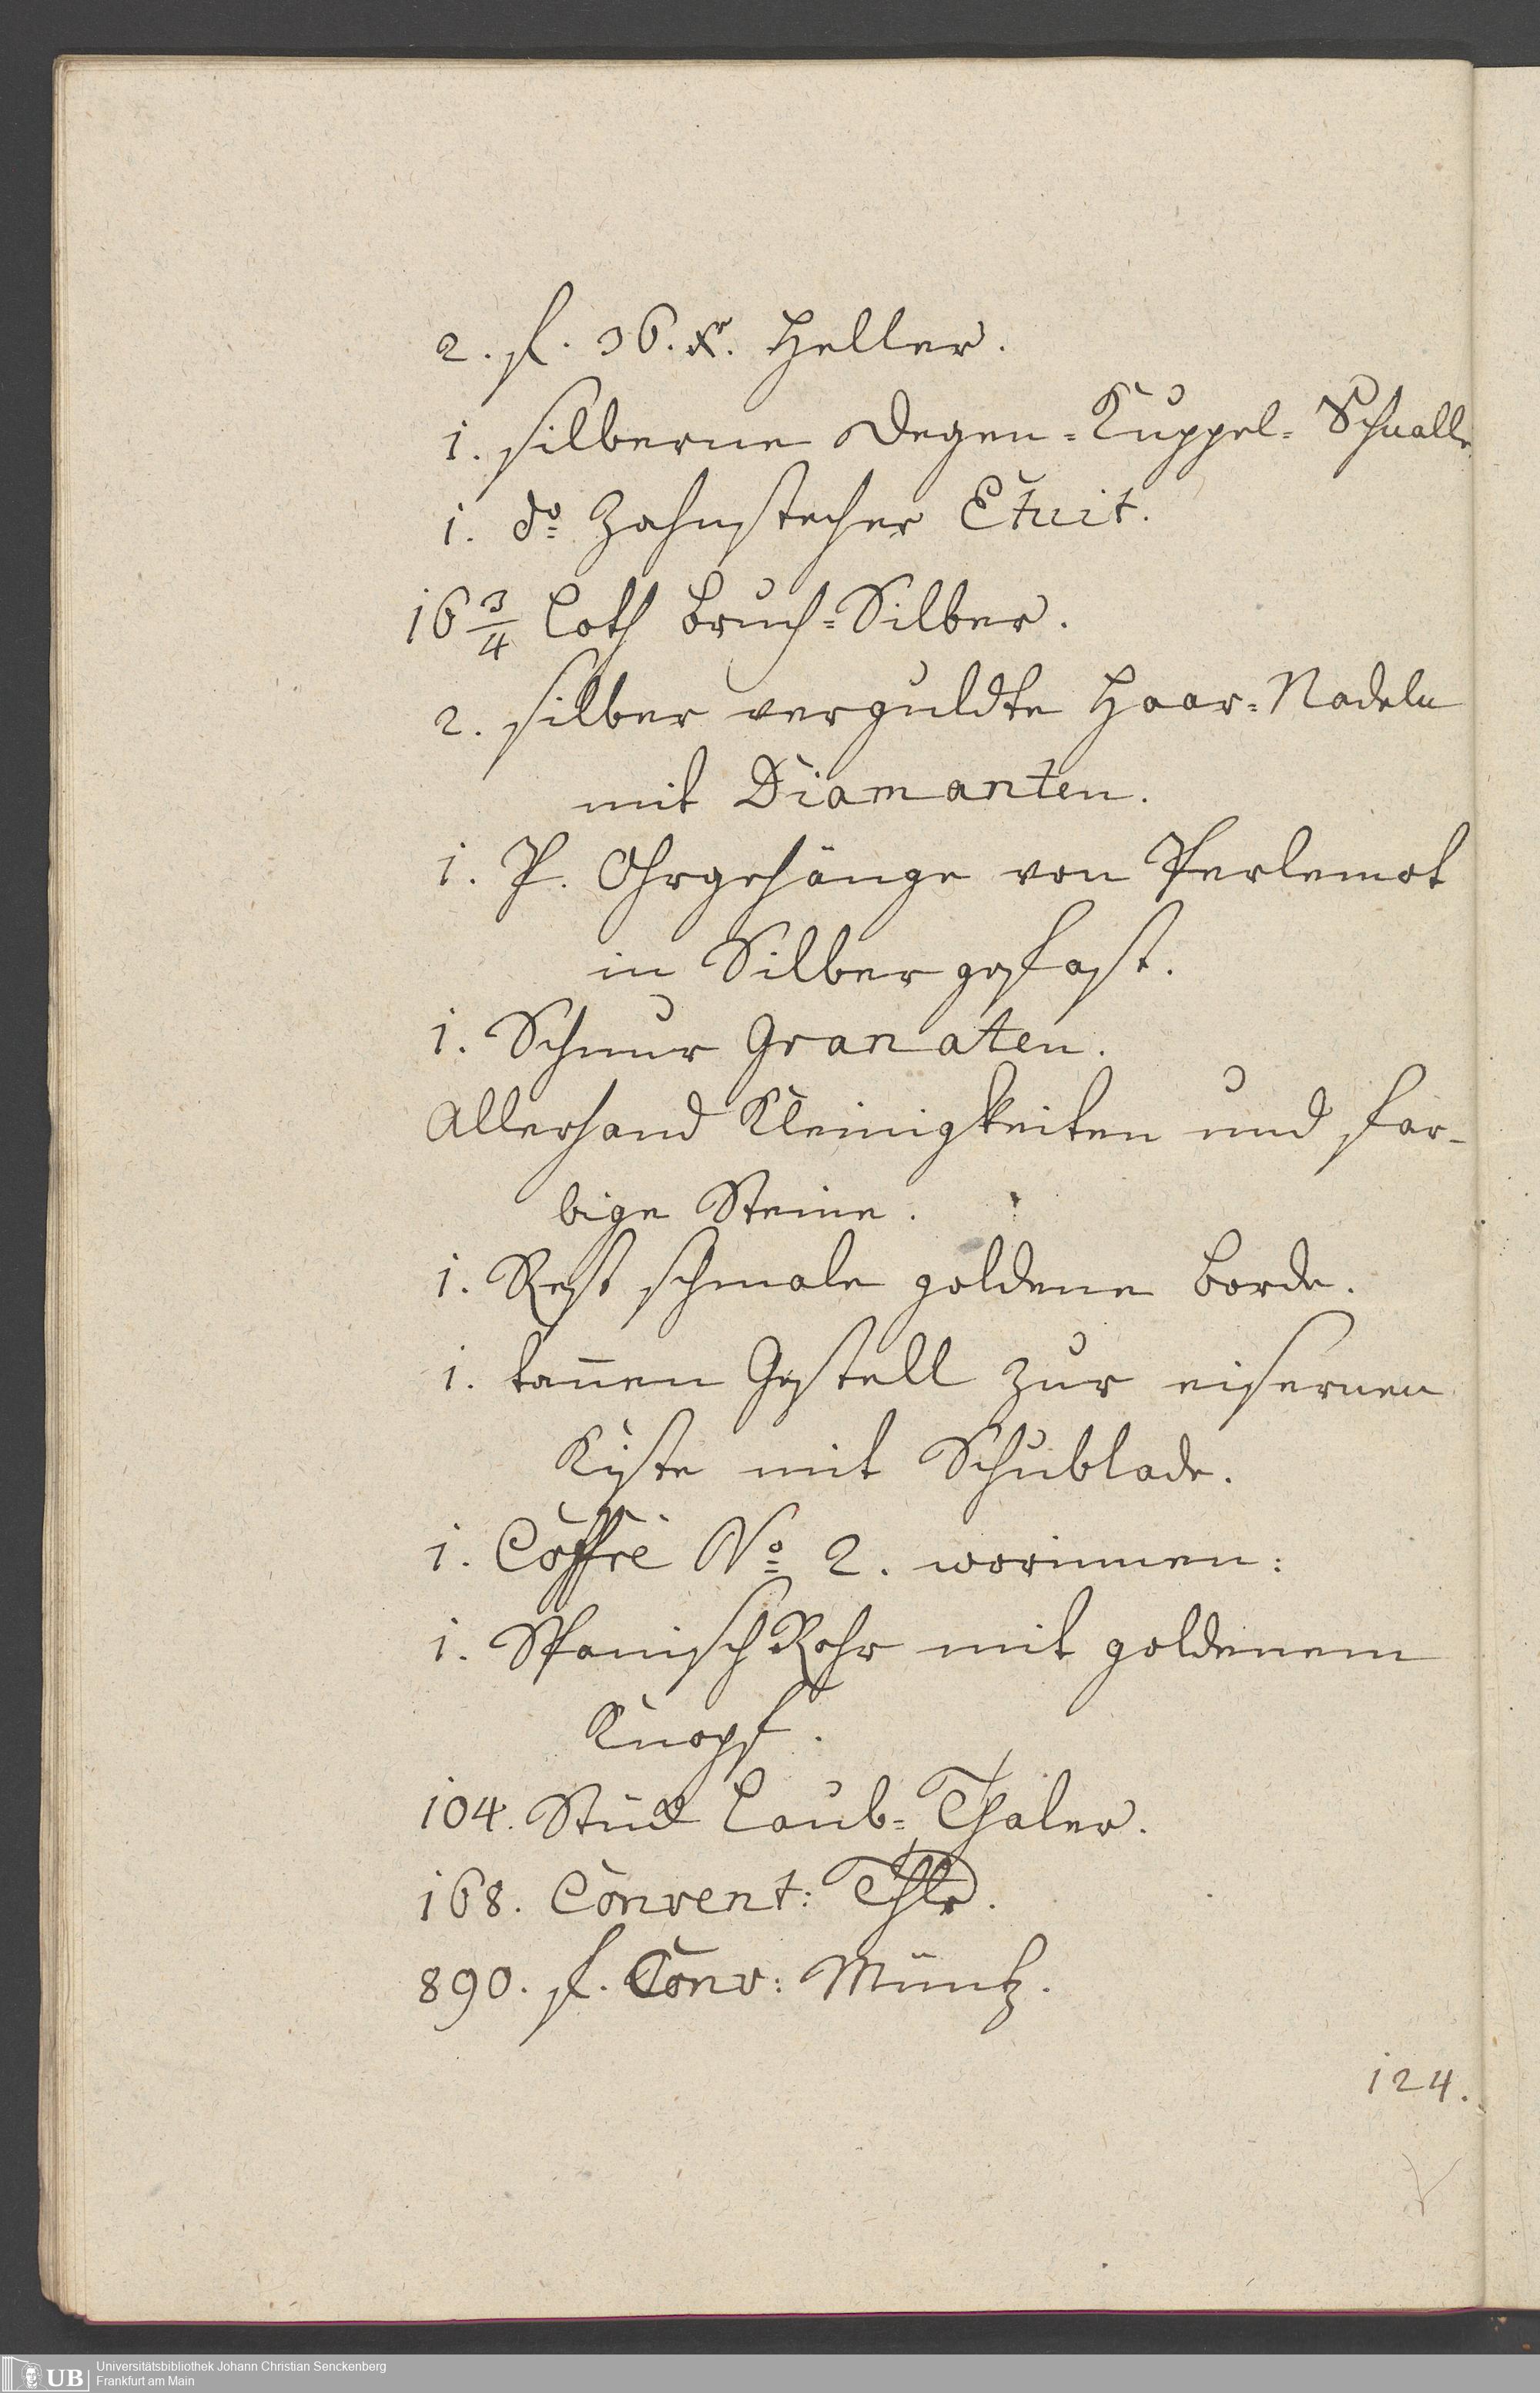 2. f. 36. Xr. Heller.
1. silberne Degen-Kuppel-Schnalle
1. do Zahnstecher Etuit.
16 3/4 Loth Bruch-Silber.
2. silber verguldte Haar-Nadeln
mit Diamanten.
1. P. Ohrgehänge von Perlemot
in Silber gefast.
1. Schnur Granaten.
Allerhand Kleinigkeiten und far-
bige Steine.
1. Rest schmale goldene Borde.
1. tan̄en Gestell zur eisernen
Kiste mit Schublade.
1. Coffre No 2. worinnen:
1. Spanisch Rohr mit goldenem
Knopf.
104. Stück Laub-Thaler.
168. Convent: Thlr.
890. f. Conv: Müntz.
124.
UB Universitätsbibliothek Johann Christian Senckenberg
Frankfurt am Main